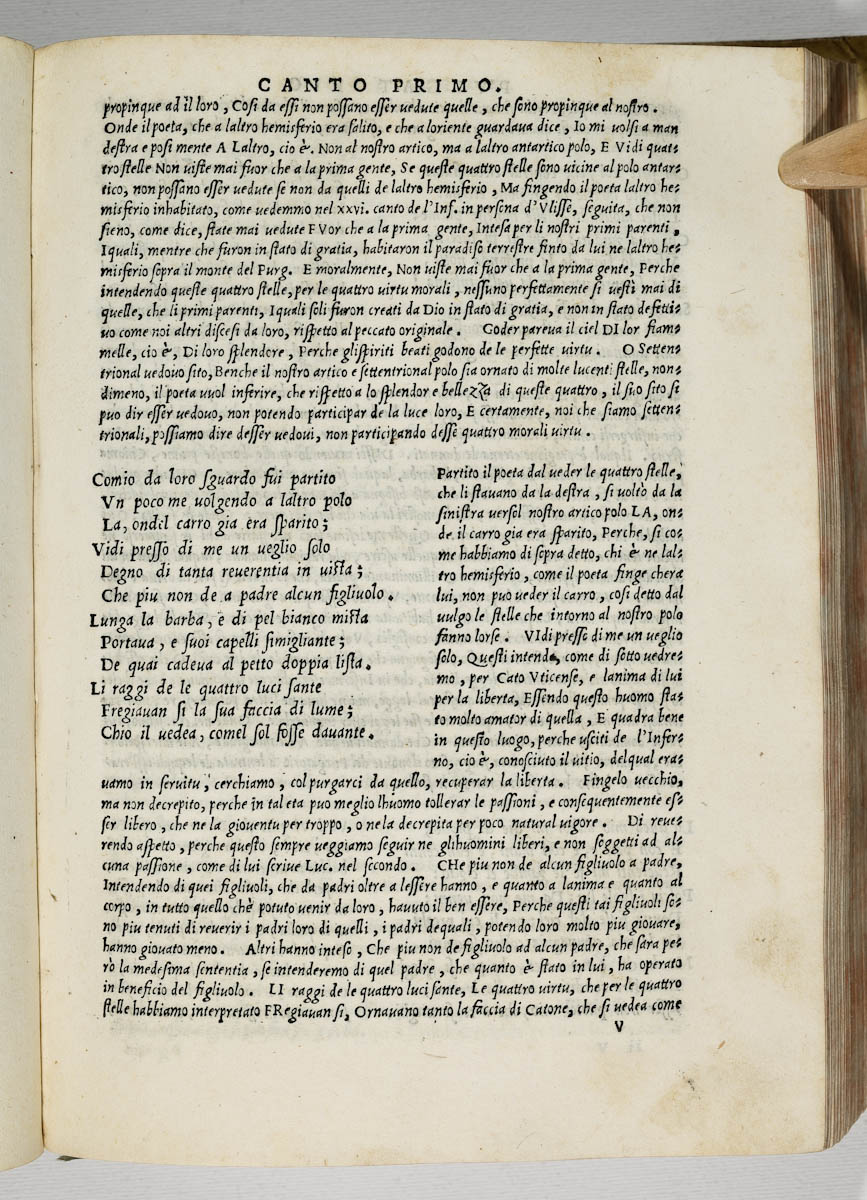 CANTO PRIMO.
propinque ad il loro, Cosi da essi non possano esser uedute quelle, che sono propinque al nostro.
Onde il poeta, che a laltro hemisferio era salito, e che a loriente guardaua dice, Io mi uolsi a man
destra e posi mente A Laltro, cio è. Non al nostro artico, ma a laltro antartico polo, E Vidi quat=
tro stelle Non uiste mai fuor che a la prima gente, Se queste quattro stelle sono uicine al polo antar=
tico, non possano esser uedute se non da quelli de laltro hemisferio, Ma fingendo il poeta laltro he=
misferio inhabitato, come uedemmo nel xxvi. canto de l'Inf. in persona d'Vlisse, seguita, che non
sieno, come dice, state mai uedute FVor che a la prima gente, Intesa per li nostri primi parenti,
I quali, mentre che furon in stato di gratia, habitaron il paradiso terrestre finto da lui ne laltro he=
misferio sopra il monte del Purg. E moralmente, Non uiste mai fuor che a la prima gente, Perche
intendendo queste quattro stelle, per le quattro uirtu morali, nessuno perfettamente si uesti mai di
quelle, che li primi parenti, I quali soli furon creati da Dio in stato di gratia, e non in stato defetti=
uo come noi altri discesi da loro, rispetto al peccato originale. Goder pareua il ciel DI lor fiam=
melle, cio è, Di loro splendore, Perche gli spiriti beati godono de le perfette uirtu. O Setten=
trional uedouo sito, Benche il nostro artico e settentrional polo sia ornato di molte lucenti stelle, non=
dimeno, il poeta uuol inferire, che rispetto a lo splendor e bellezza di queste quattro, il suo sito si
puo dir esser uedouo, non potendo participar de la luce loro, E certamente, noi che siamo setten=
trionali, possiamo dire desser uedoui, non participando desse quattro morali uirtu.
Comio da loro sguardo fui partito
Vn poco me uolgendo a laltro polo
La, ondil carro gia era sparito;
Vidi presso di me un ueglio solo
Degno di tanta reuerentia in uista;
Che piu non de a padre alcun figliuolo.
Lunga la barba, e di pel bianco mista
Portaua, e suoi capelli simigliante;
De quai cadeua al petto doppia lista.
Li raggi de le quattro luci sante
Fregiauan si la sua faccia di lume;
Chio il uedea, comel sol fosse dauante.
Partito il poeta dal ueder le quattro stelle,
che li stauano da la destra, si uoltò da la
sinistra uersol nostro artico polo LA, on=
de il carro gia era sparito, Perche, si co=
me habbiamo di sopra detto, chi è ne lal=
tro hemisferio, come il poeta finge chera
lui, non puo ueder il carro, cosi detto dal
uulgo le stelle che intorno al nostro polo
fanno lorse. VIdi presso di me un ueglio
solo, Questi intende, come di sotto uedre=
mo, per Cato Vticense, e lanima di lui
per la liberta, Essendo questo huomo sta=
to molto amator di quella, E quadra bene
in questo luogo, perche usciti de l'Infer=
no, cio è, conosciuto il uitio, del qual era=
uamo in seruitu, cerchiamo, col purgarci da quello, recuperar la liberta. Fingelo uecchio,
ma non decrepito, perche in tal eta puo meglio lhuomo tollerar le passioni, e consequentemente es=
ser libero, che ne la giouentu per troppo, o ne la decrepita per poco natural uigore. Di reue=
rendo aspetto, perche questo sempre ueggiamo seguir ne gli huomini liberi, e non soggetti ad al=
cuna passione, come di lui scriue Luc. nel secondo. CHe piu non de alcun figliuolo a padre,
Intendendo di quei figliuoli, che da padri oltre a lessere hanno, e quanto a lanima e quanto al
corpo, in tutto quello chè potuto uenir da loro, hauuto il ben essere, Perche questi tai figliuoli so=
no piu tenuti di reuerir i padri loro di quelli, i padri de quali, potendo loro molto piu giouare,
hanno giouato meno. Altri hanno inteso, Che piu non de figliuolo ad alcun padre, che sara pe=
rò la medesima sententia, se intenderemo di quel padre, che quanto è stato in lui, ha operato
in beneficio del figliuolo. LI raggi de le quattro luci sante, Le quattro uirtu, che per le quattro
stelle habbiamo interpretato FRegiauan si, Ornauano tanto la faccia di Catone, che si uedea come
V